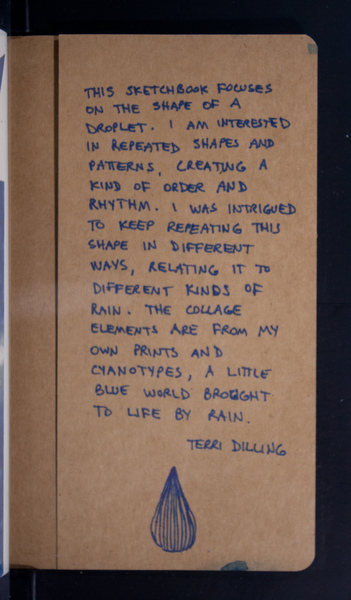 THIS SKETCHBOOK FOCUSES
ON THE SHAPE OF A
DROPLET. I AM INTERESTED
IN REPEATED SHAPES AND
PATTERNS, CREATING A
KIND OF ORDER AND
RHYTHM. I WAS INTRIGUED
TO KEEP REPEATING THIS
SHAPE IN DIFFERENT
WAYS, RELATING IT TO
DIFFERENT KINDS OF
RAIN. THE COLLAGE
ELEMENTS ARE FROM MY
OWN PRINTS AND
CYANOTYPES, A LITTLE
BLUE WORLD BROUGHT
TO LIFE BY RAIN.
TERRI DILLING